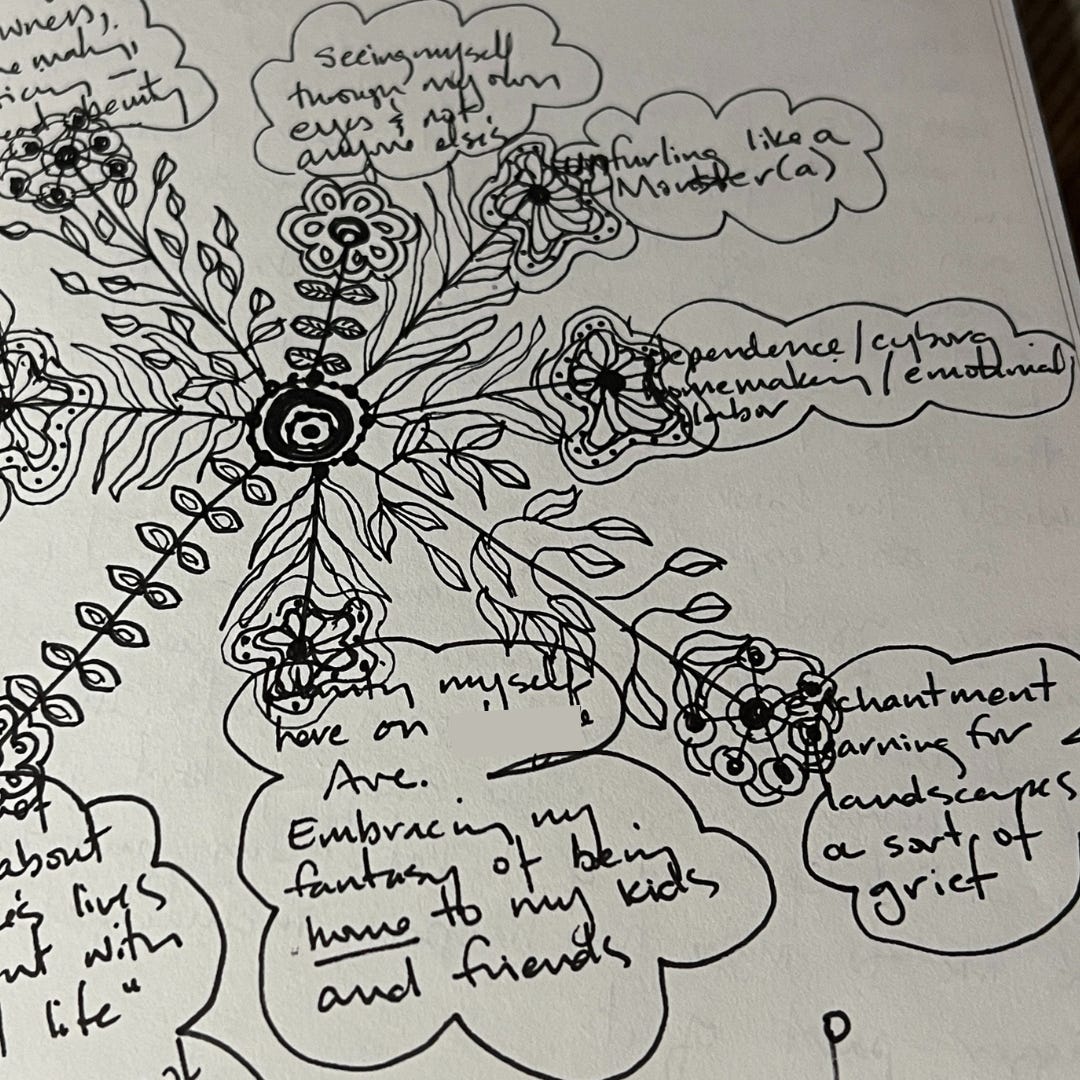 seeing myself
through my own
eyes & not
anyone else's
unfurling like a
Monster(a)
dependence / cyborg
homemaking / emotional
labor
myself
here on
Ave.
Embracing my
fantasy of being
home to my kids
and friends
enchantment
for
landscapes
a sort of
grief
about
lives
with
life"